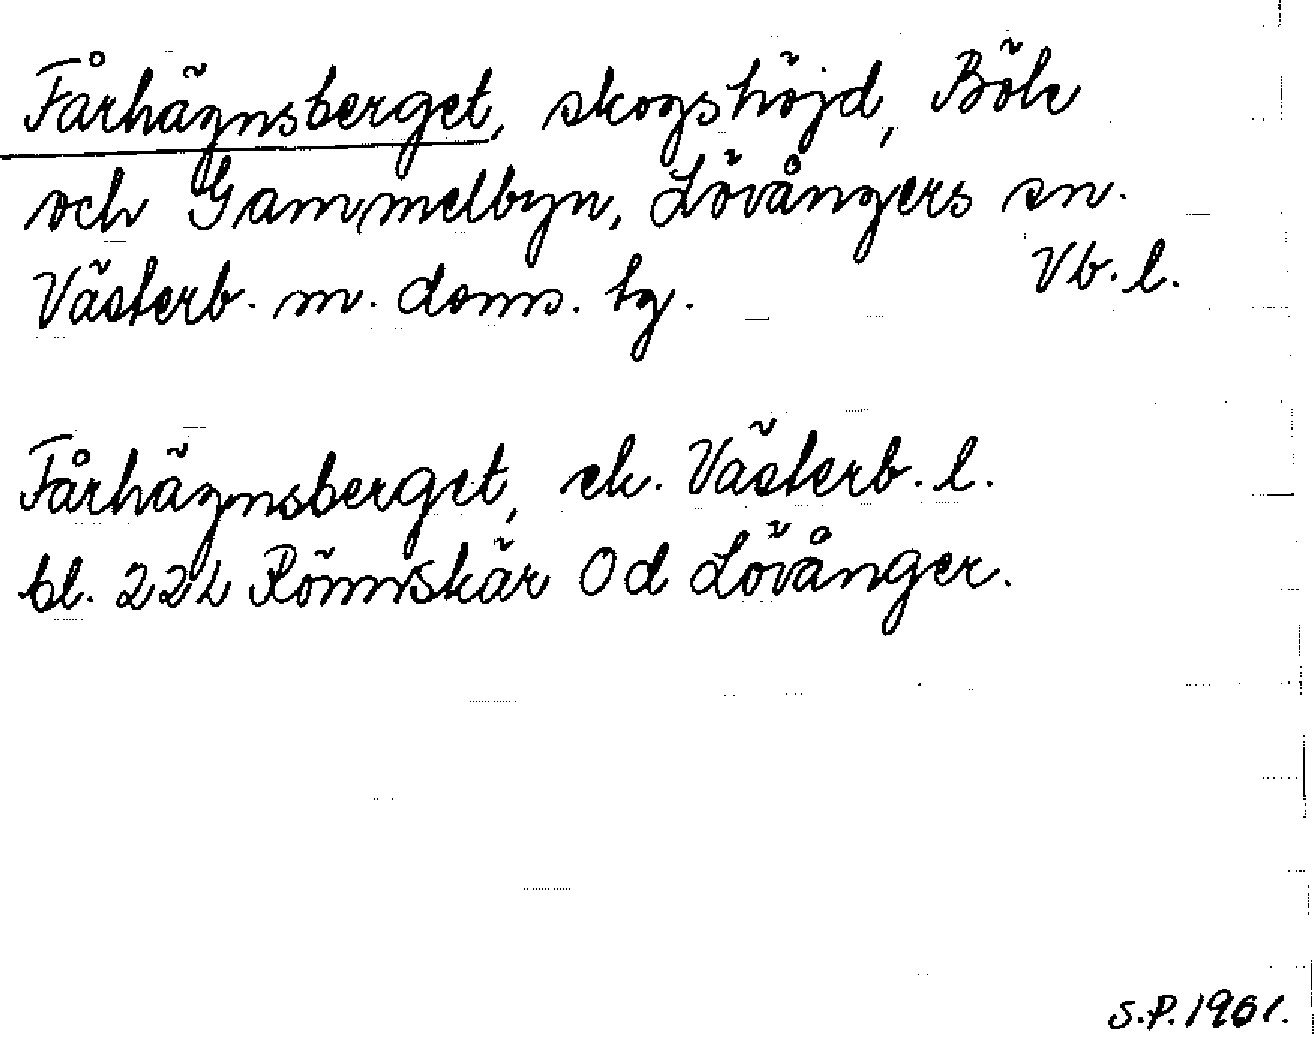 Fårhägnsberget, skogshöjd, Böle
och Gammelbyn, Lövångers sn.
Västerb. m. doms. tg. Vb. l.
Fårhägnsberget, ek. Västerb. l.
bl. 222 Rönnskär Od Lövånger.
S.P. 1961.